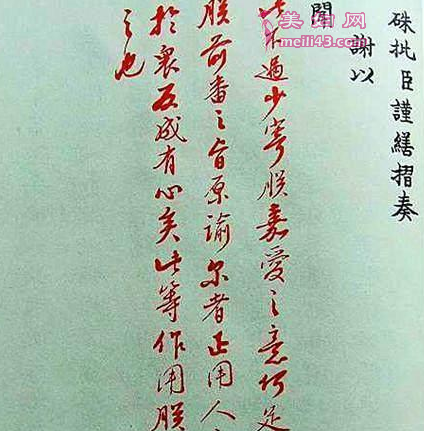 硃批臣謹繕摺奏
謝以
聞
不過少寄朕嘉愛之意何足
朕前番之旨原諭尔者正用人
於衆反成有心矣此等作用朕
之也
美妇网
meili43.com